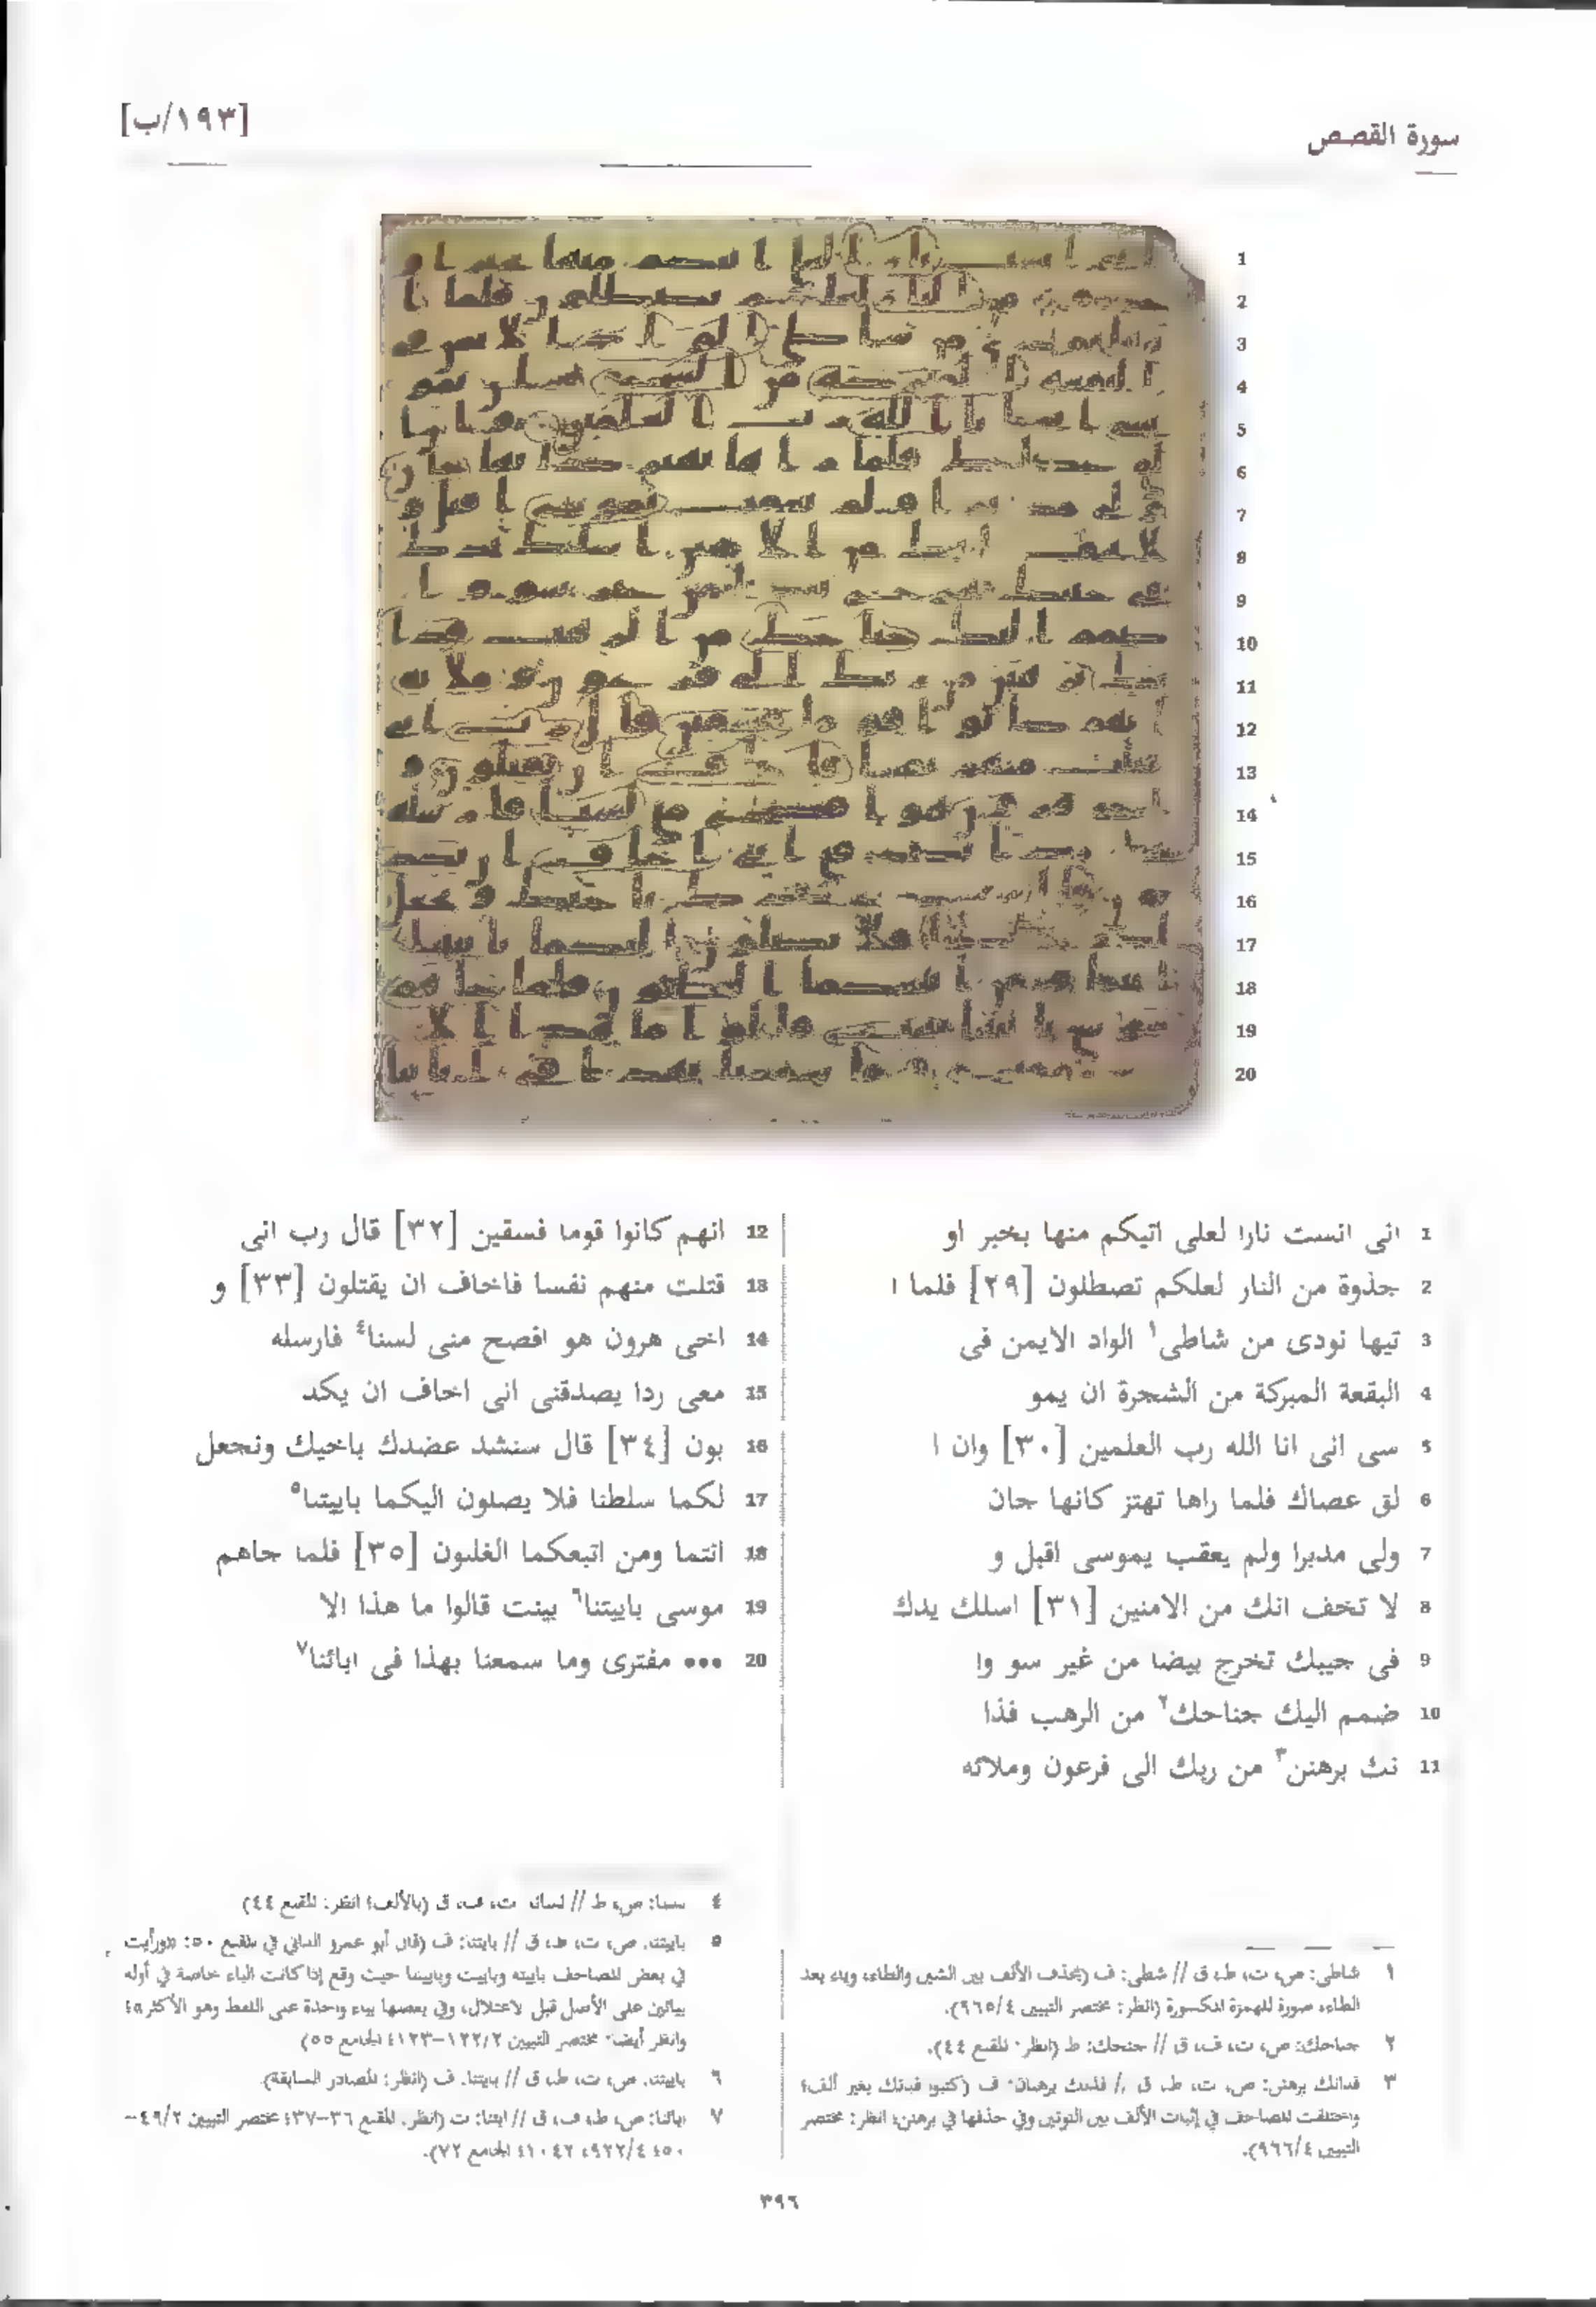 سورة القصص
[١٩٣/ب]
1
2
3
4
5
6
7
8
9
10
11
12
13
14
15
16
17
18
19
20
1 انى انست نارا لعلى اتيكم منها بخبر او
2 جذوة من النار لعلكم تصطلون [٢٩] فلما ا
3 تيها نودى من شاطى١ الواد الايمن فى
4 البقعة المبركة من الشجرة ان يمو
5 سى انى انا الله رب العلمين [٣٠] وان ا
6 لق عصاك فلما راها تهتز كانها جان
7 ولى مدبرا ولم يعقب يموسى اقبل و
8 لا تخف انك من الامنين [٣١] اسلك يدك
9 فى جيبك تخرج بيضا من غير سو وا
10 ضمم اليك جناحك٢ من الرهب فذا
11 نك برهنن٣ من ربك الى فرعون وملائه
12 انهم كانوا قوما فسقين [٣٢] قال رب انى
13 قتلت منهم نفسا فاخاف ان يقتلون [٣٣] و
14 اخى هرون هو افصح منى لسنا٤ فارسله
15 معى ردا يصدقنى انى اخاف ان يكذ
16 بون [٣٤] قال سنشد عضدك باخيك ونجعل
17 لكما سلطنا فلا يصلون اليكما باييتنا٥
18 انتما ومن اتبعكما الغلبون [٣٥] فلما جاهم
19 موسى باييتنا٦ بينت قالوا ما هذا الا
20 ••• مفترى وما سمعنا بهذا فى ابائنا٧
١ شاطى: ص، ت، ط، ق // شطى: ف (بحذف الألف بين الشين والطاء، وياء بعد
الطاء، صورة للهمزة المكسورة (انظر: مختصر التبيين ٩٦٥/٤).
٢ جناحك: ص، ت، ف، ق // جنحك: ط (انظر: المقنع ٤٤).
٣ فذانك برهنن: ص، ت، ط، ق // فذنك برهانن: ف (كتبوا فذنك بغير ألف؛
واختلفت المصاحف في إثبات الألف بين النونين وفي حذفها في برهنن؛ انظر: مختصر
التبيين ٩٦٦/٤).
٤ لسنا: ص، ط // لسانا: ت، ف، ق (بالألف؛ انظر: المقنع ٤٤)
٥ باييتنا: ص، ت، ط، ق // بايتنا: ف (قال أبو عمرو الداني في المقنع ٥٠: «ورأيت
في بعض المصاحف باييته وباييت وباييتنا حيث وقع إذا كانت الباء خاصة في أوله
بيائين على الأصل قبل الاعتلال، وفي بعضها بياء واحدة على اللفظ وهو الأكثر»؛
وانظر أيضا: مختصر التبيين ١٢٢/٢-١٢٣؛ الجامع ٥٥)
٦ باييتنا: ص، ت، ط، ق // بايتنا: ف (انظر: المصادر السابقة).
٧ ابائنا: ص، ط، ف، ق // ابتنا: ت (انظر: المقنع ٣٦-٣٧؛ مختصر التبيين ٤٩/٢-
٥٠؛ ٩٢٢/٤، ١٠٤٢؛ الجامع ٧٢).
٣٩٦